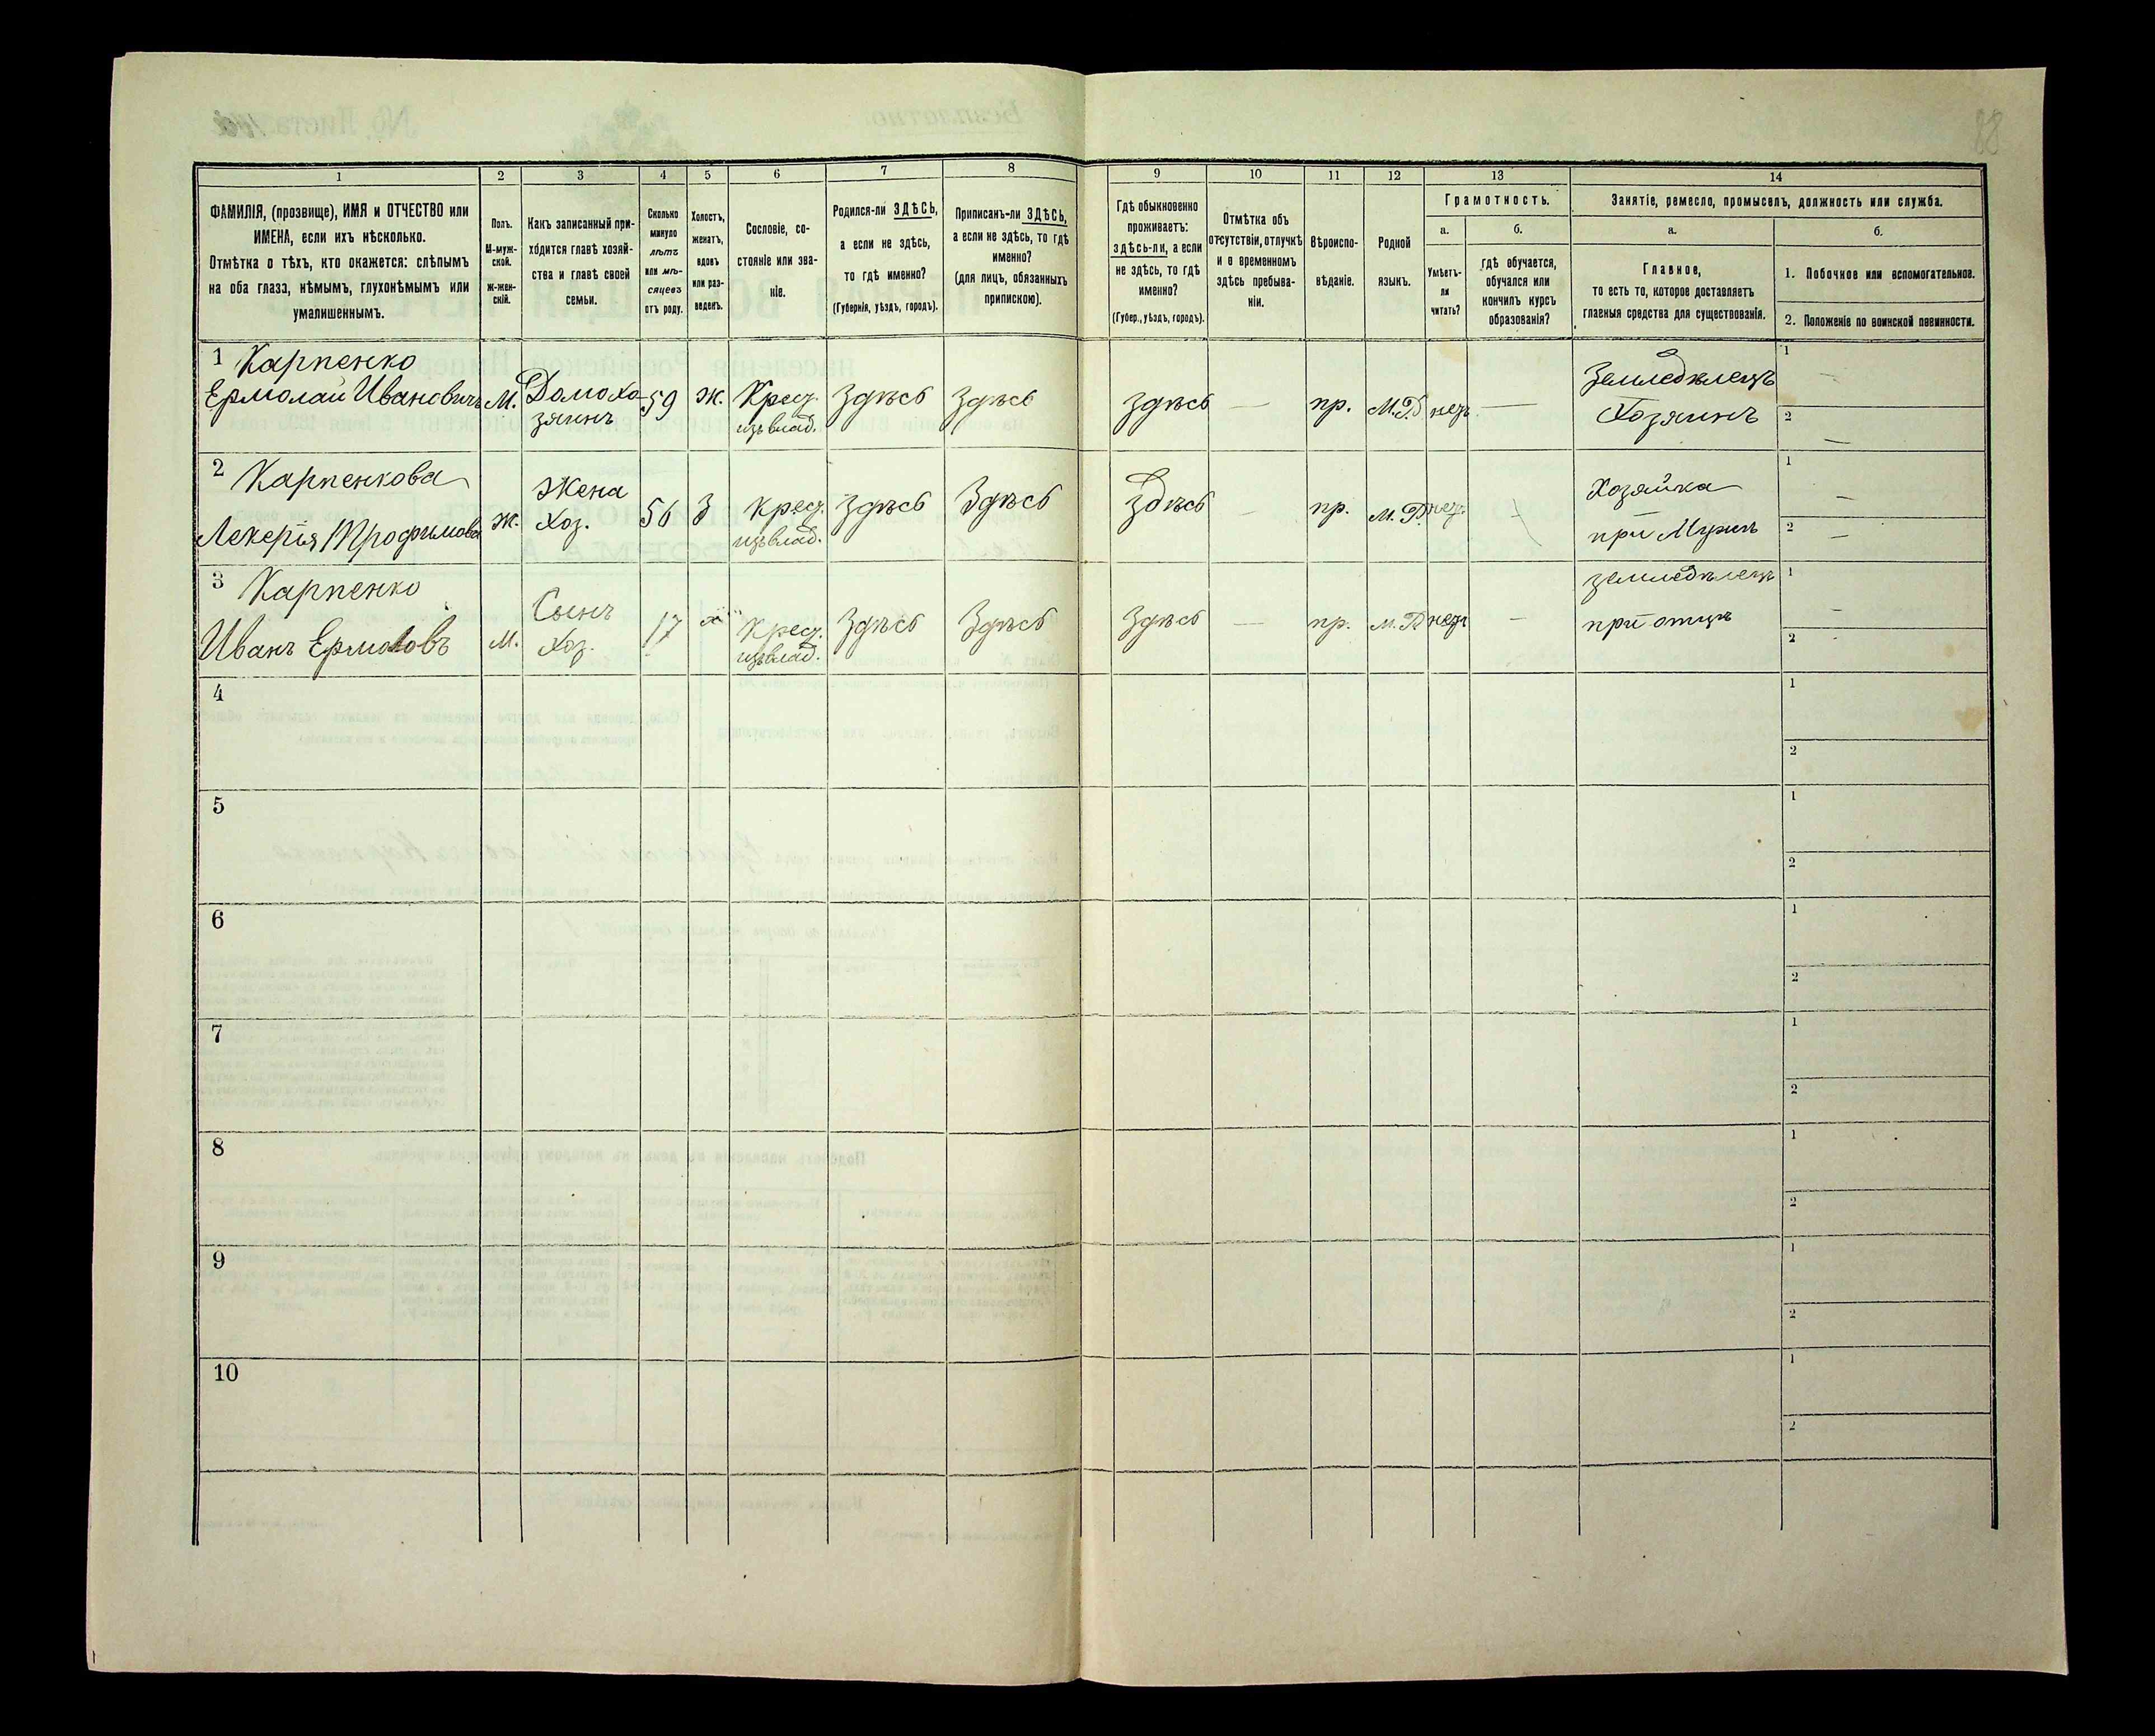 88
1
2
3
4
5
6
7
8
9
10
11
12
13
14
ФАМИЛІЯ, (прозвище), ИМЯ и ОТЧЕСТВО или
ИМЕНА, если ихъ нѣсколько.
Отмѣтка о тѣхъ, кто окажется: слѣпымъ
на оба глаза, нѣмымъ, глухонѣмымъ или
умалишеннымъ.
Полъ.
М-муж-
ской.
Ж-жен-
скій.
Какъ записанный при-
ходится главѣ хозяй-
ства и главѣ своей
семьи.
Сколько
минуло
лѣтъ
или мѣ-
сяцевъ
отъ роду.
Холостъ,
женатъ,
вдовъ
или раз-
веденъ.
Сословіе, со-
стояніе или зва-
ніе.
Родился-ли ЗДѢСЬ,
а если не здѣсь,
то гдѣ именно?
(Губернія, уѣздъ, городъ).
Приписанъ-ли ЗДѢСЬ,
а если не здѣсь, то гдѣ
именно?
(для лицъ, обязанныхъ
припискою).
Гдѣ обыкновенно
проживаетъ:
здѣсь-ли, а если
не здѣсь, то гдѣ
именно?
(Губер., уѣздъ, городъ).
Отмѣтка объ
отсутствіи, отлучкѣ
и о временномъ
здѣсь пребыва-
ніи.
Вѣроиспо-
вѣданіе.
Родной
языкъ.
Грамотность.
а.
Умѣетъ-
ли
читать?
б.
гдѣ обучается,
обучался или
кончилъ курсъ
образованія?
Занятіе, ремесло, промыселъ, должность или служба.
а.
Главное,
то есть то, которое доставляетъ
главныя средства для существованія.
б.
1. Побочное или вспомогательное.
2. Положеніе по воинской повинности.
1 Карпенко
Ермолай Ивановичъ
М.
Домохо-
зяинъ
59
Ж.
Крест.
изъ влад.
Здѣсь
Здѣсь
Здѣсь
—
пр.
М.Р.
нетъ
—
Земледѣлецъ
Хозяинъ
1 —
2 —
2 Карпенкова
Лекерія Трофимова
Ж.
Жена
Хоз.
56
З
Крест.
изъ влад.
Здѣсь
Здѣсь
Здѣсь
—
пр.
М. Р.
нет.
Хозяйка
при Мужѣ
1 —
2 —
3 Карпенко
Иванъ Ермоловъ
М.
Сынъ
Хоз.
17
Х
Крест.
изъ влад.
Здѣсь
Здѣсь
Здѣсь
—
пр.
М. Р
нетъ
—
земледѣлецъ
при отцѣ
1 —
2
4
1
2
5
1
2
6
1
2
7
1
2
8
1
2
9
1
2
10
1
2